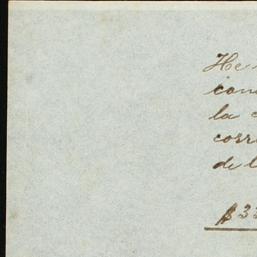 He
can
la
corr
de l
$ 33